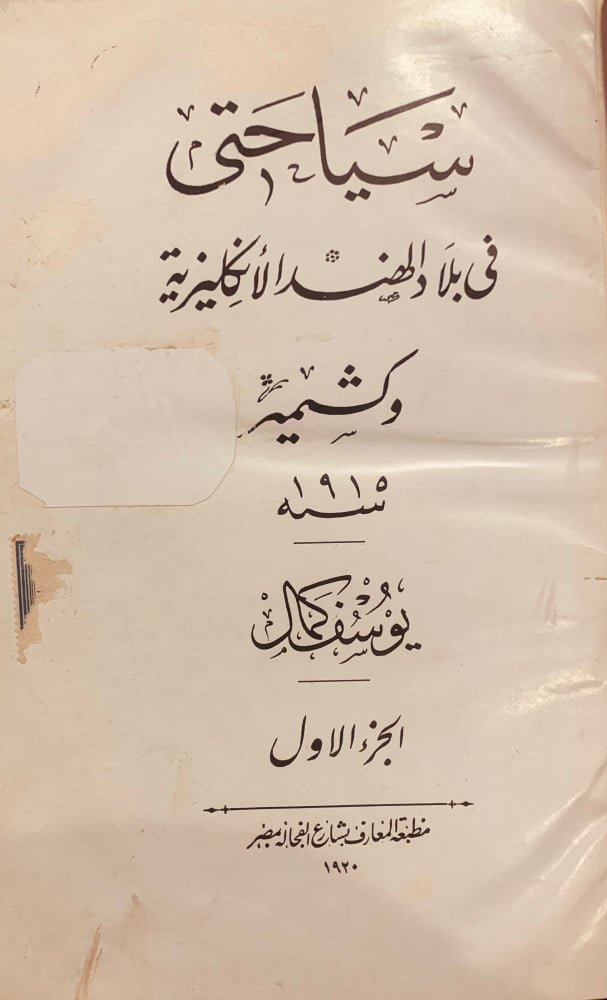 سياحتى
فى بلاد الهند الأنكليزية
وكشمير
سنه ١٩١٥
يوسف كمال
الجزء الاول
مطبعة المعارف بشارع الفجاله بمصر
١٩٢٠